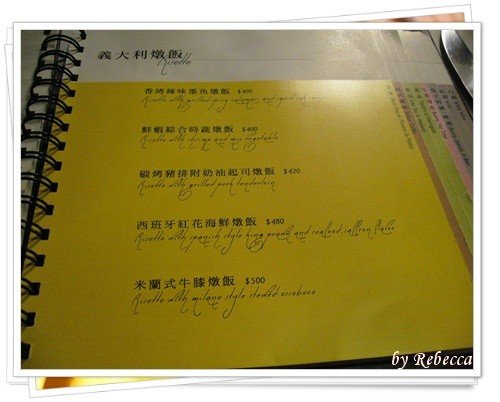 義大利燉飯
Risotto
香烤辣味墨魚燉飯 $400
Risotto with grilled spicy calamari and squid ink sauce
鮮蝦綜合時蔬燉飯 $400
Risotto with shrimp and mix vegetable
碳烤豬排附奶油起司燉飯 $420
Risotto with grilled pork tenderloin
西班牙紅花海鮮燉飯 $480
Risotto with spanish style king prawn and seafood saffron flavor
米蘭式牛膝燉飯 $500
Risotto with milano style stewed ossobuco
by Rebecca